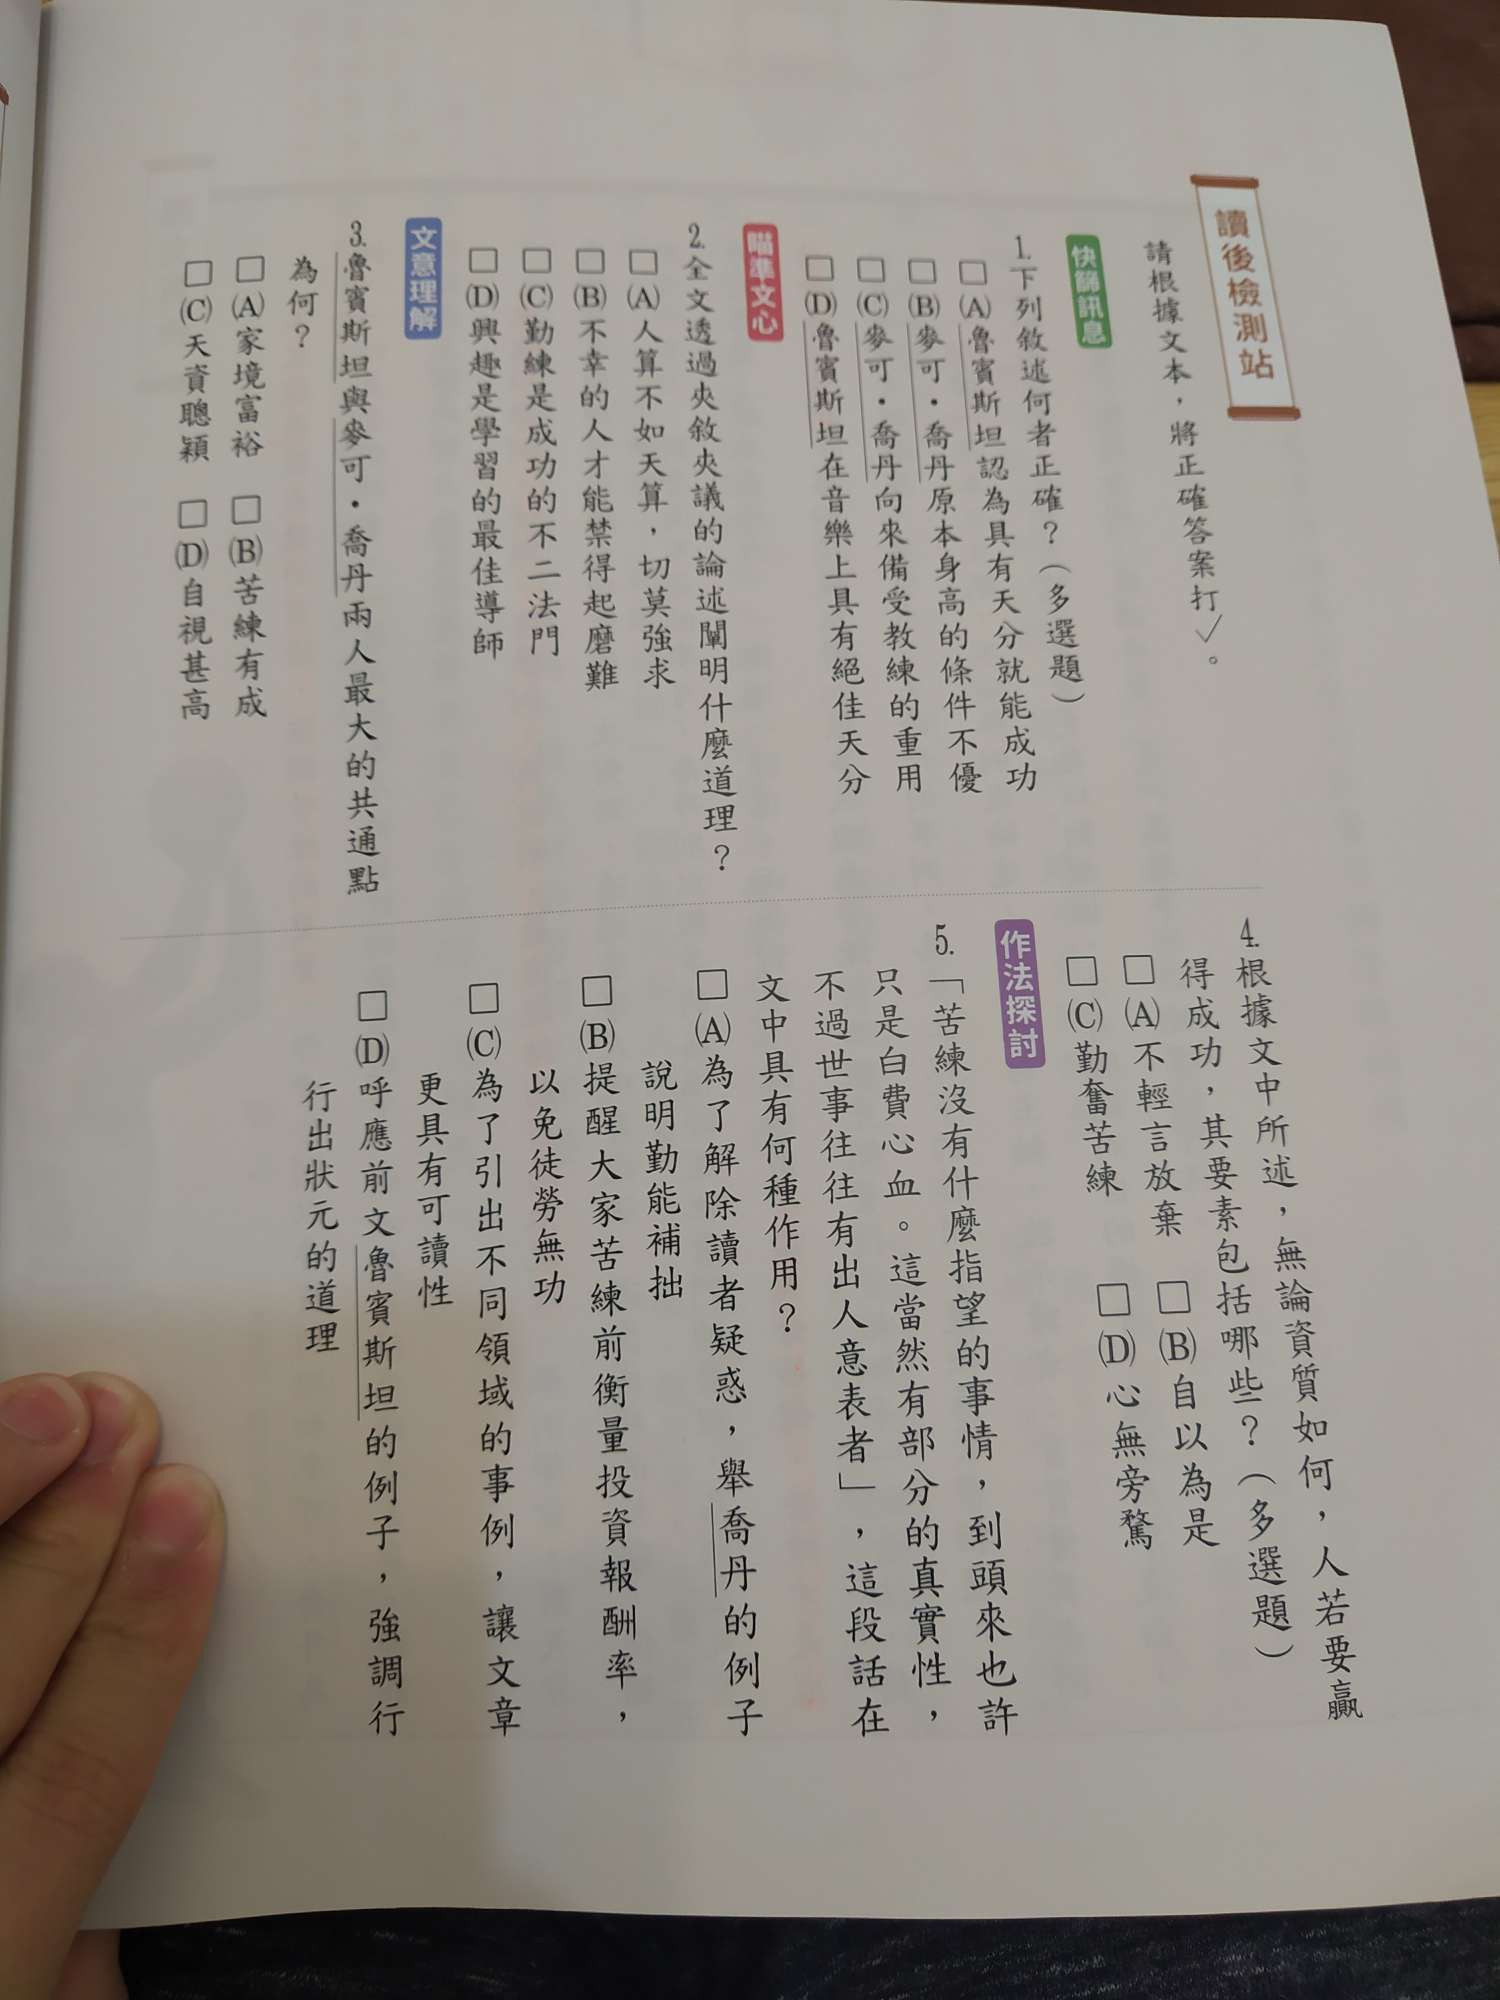 讀後檢測站
請根據文本，將正確答案打✓。
快篩訊息
1.下列敘述何者正確？（多選題）
□(A)魯賓斯坦認為具有天分就能成功
□(B)麥可・喬丹原本身高的條件不優
□(C)麥可・喬丹向來備受教練的重用
□(D)魯賓斯坦在音樂上具有絕佳天分
瞄準文心
2.全文透過夾敘夾議的論述闡明什麼道理？
□(A)人算不如天算，切莫強求
□(B)不幸的人才能禁得起磨難
□(C)勤練是成功的不二法門
□(D)興趣是學習的最佳導師
文意理解
3.魯賓斯坦與麥可・喬丹兩人最大的共通點
為何？
□(A)家境富裕 □(B)苦練有成
□(C)天資聰穎 □(D)自視甚高
4.根據文中所述，無論資質如何，人若要贏
得成功，其要素包括哪些？（多選題）
□(A)不輕言放棄 □(B)自以為是
□(C)勤奮苦練 □(D)心無旁騖
作法探討
5.「苦練沒有什麼指望的事情，到頭來也許
只是白費心血。這當然有部分的真實性，
不過世事往往有出人意表者」，這段話在
文中具有何種作用？
□(A)為了解除讀者疑惑，舉喬丹的例子
說明勤能補拙
□(B)提醒大家苦練前衡量投資報酬率，
以免徒勞無功
□(C)為了引出不同領域的事例，讓文章
更具有可讀性
□(D)呼應前文魯賓斯坦的例子，強調行
行出狀元的道理